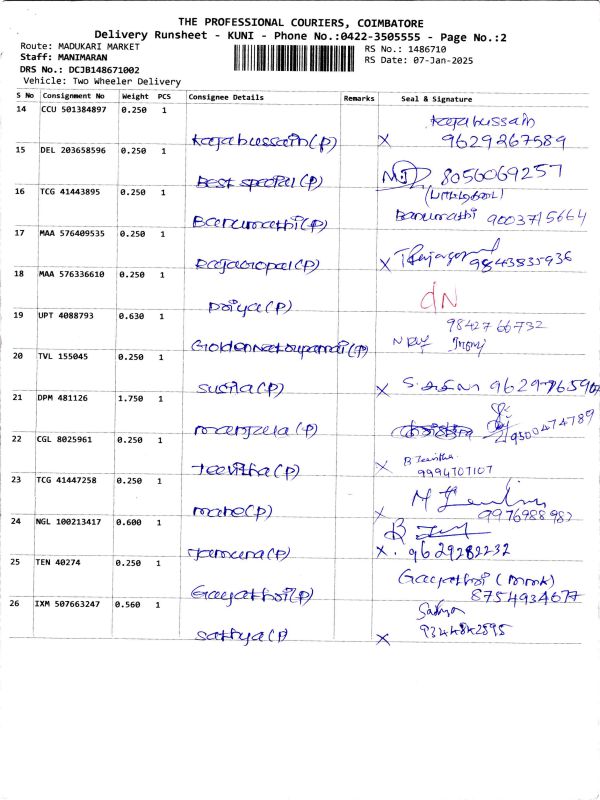 THE PROFESSIONAL COURIERS, COIMBATORE
Delivery Runsheet - KUNI - Phone No.:0422-3505555 - Page No.:2
Route: MADUKARI MARKET
RS No.: 1486710
Staff: MANIMARAN
RS Date: 07-Jan-2025
DRS No.: DCJB148671002
Vehicle: Two Wheeler Delivery
S No Consignment No Weight PCS Consignee Details Remarks Seal & Signature
14 CCU 501384897 0.250 1
Kajahussain
Kajahussain(P) X 9629267589
15 DEL 203658596 0.250 1
Best special (P) 8056069257
16 TCG 41443895 0.250 1
Banumathi(P) Banumathi 9003715664
17 MAA 576409535 0.250 1
Rajagopal(P) X T Rajagopal 9843835936
18 MAA 576336610 0.250 1
Priya(P) DN
19 UPT 4088793 0.630 1
9842766732
(P)
20 TVL 155045 0.250 1
Susila(P) X S. சுசிலா 9629765907
21 DPM 481126 1.750 1
Manjula(P) 9500474789
22 CGL 8025961 0.250 1
Jeevitha(P) X B Jeevitha
9994707107
23 TCG 41447258 0.250 1
mano(P) X 997698898
24 NGL 100213417 0.600 1
Jamuna(P) X. 9629282232
25 TEN 40274 0.250 1
Gayathri(P) Gayathri
8754934677
26 IXM 507663247 0.560 1
Sathya
Sathya(P) X 9344842895